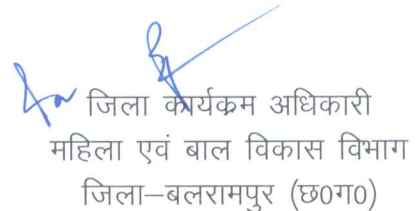 जिला कार्यक्रम अधिकारी
महिला एवं बाल विकास विभाग
जिला–बलरामपुर (छ0ग0)